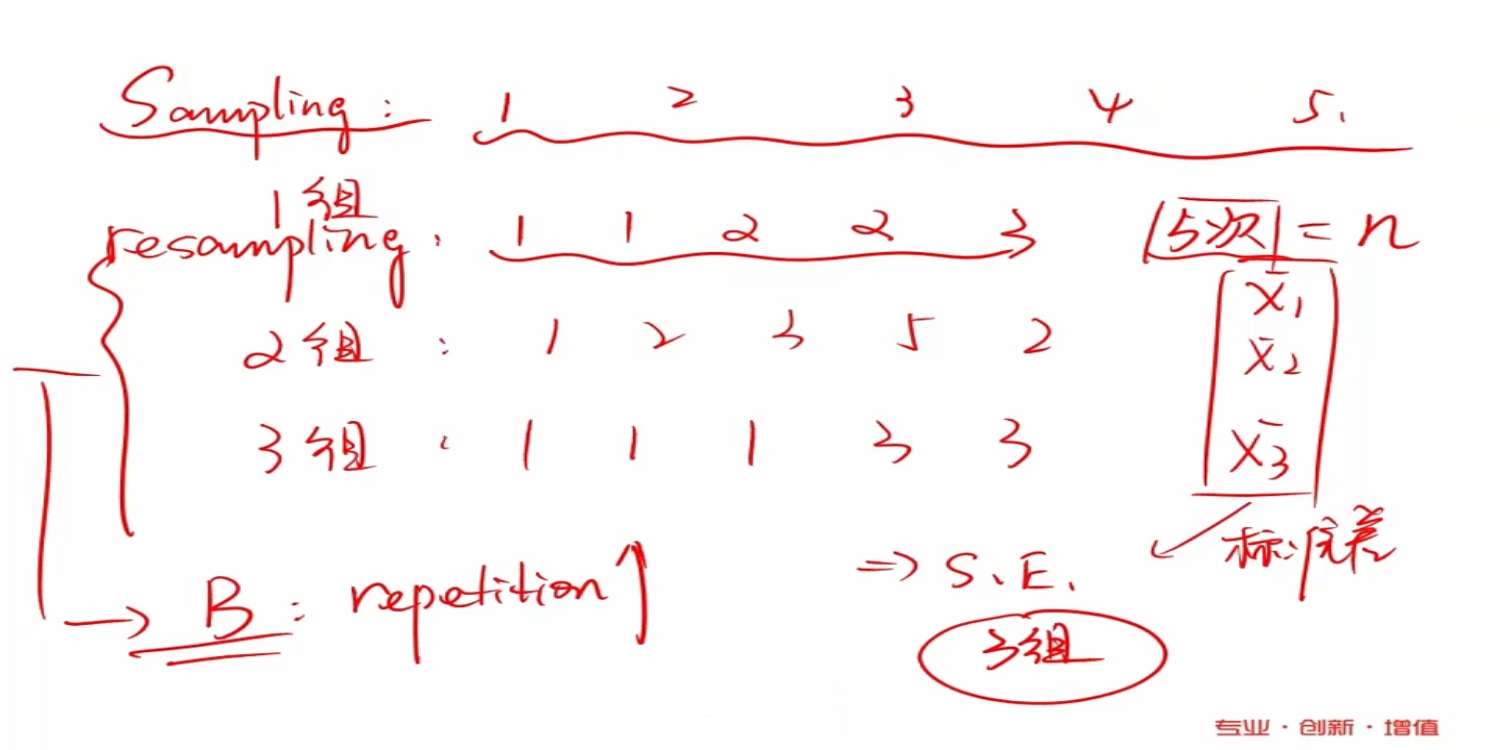 Sampling: 1 2 3 4 5.
1组
resampling: 1 1 2 2 3 5次 = n
x̄1
2组: 1 2 3 5 2 x̄2
3组: 1 1 1 3 3 x̄3
标准差
→ B: repetition↑ ⇒ S.E.
3组
专业·创新·增值